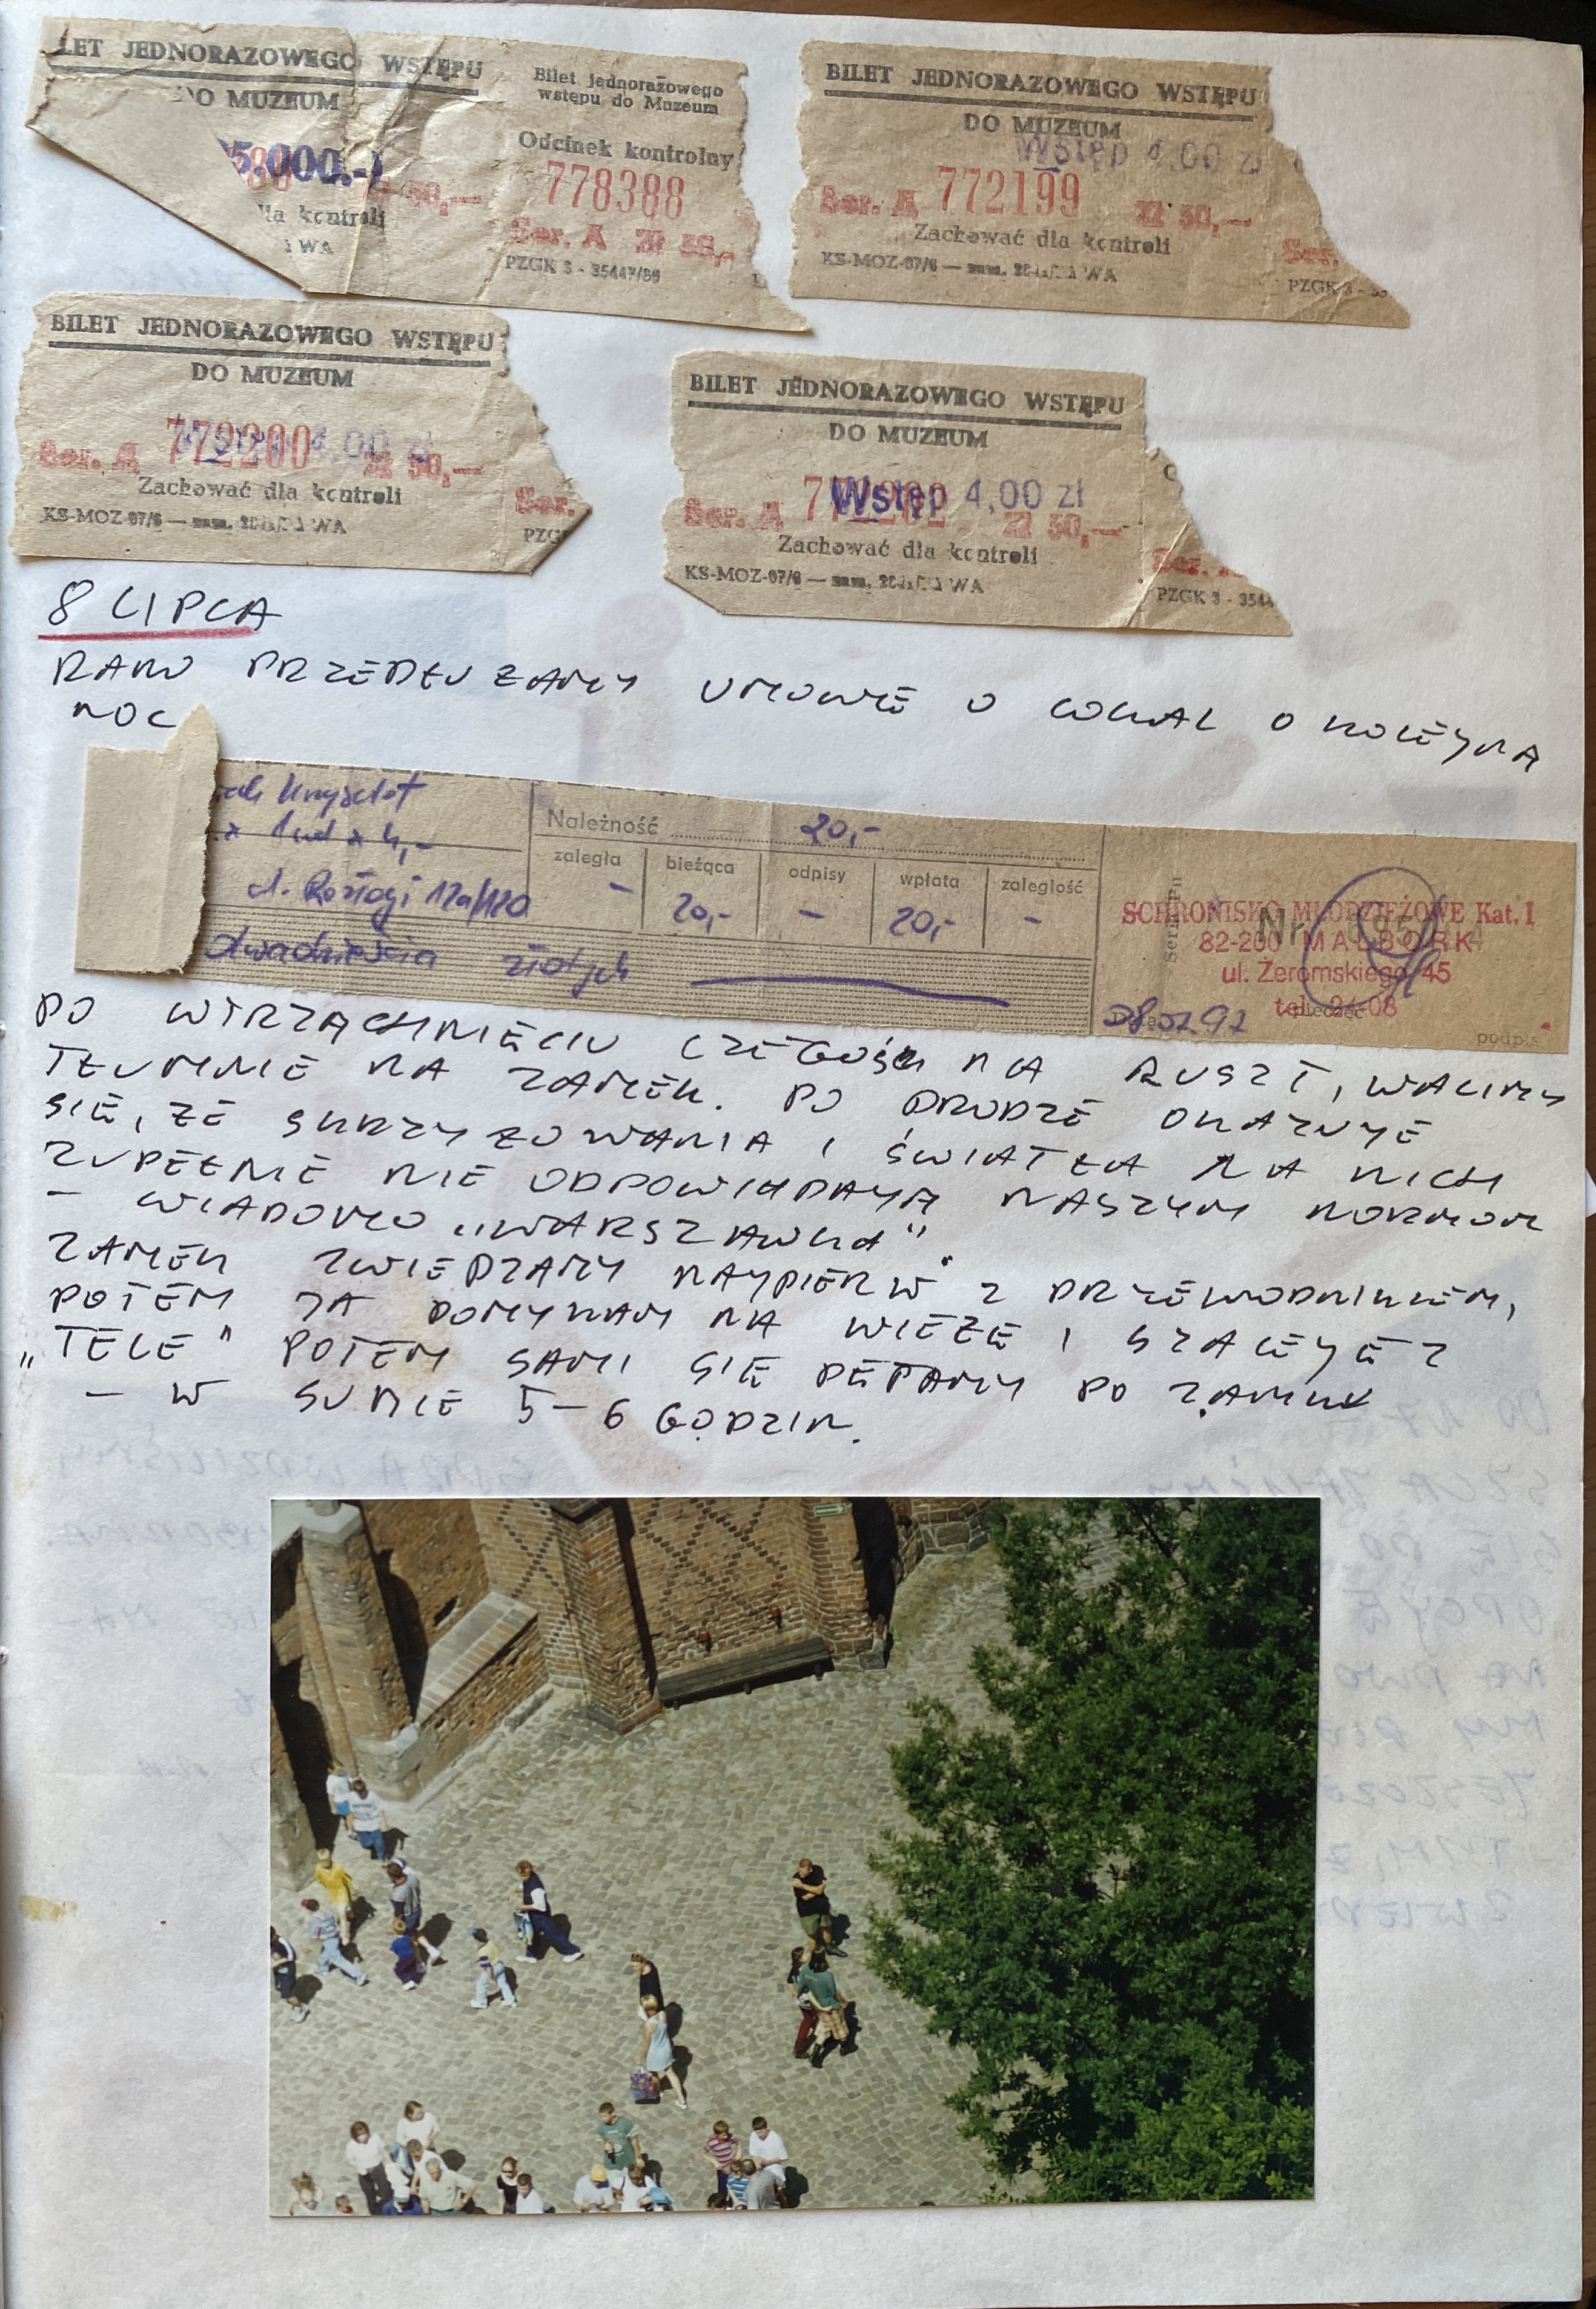 LET JEDNORAZOWEGO WSTĘPU
DO MUZEUM
5.000.-
zł 50,—
dla kontroli
WA
Bilet jednorazowego
wstępu do Muzeum
Odcinek kontrolny
778388
Ser. A zł 50,-
PZGK 3 - 35447/86
BILET JEDNORAZOWEGO WSTĘPU
DO MUZEUM
Wstęp 4,00 zł
Ser. A 772199 zł 50,—
Zachować dla kontroli
KS-MOZ-07/6 — WA
Ser.
PZGK 3 - 35
BILET JEDNORAZOWEGO WSTĘPU
DO MUZEUM
Wstęp 4,00 zł
Ser. A 772200 zł 50,—
Zachować dla kontroli
KS-MOZ-07/6 — WA
Ser.
PZG
BILET JEDNORAZOWEGO WSTĘPU
DO MUZEUM
Wstęp 4,00 zł
Ser. A 772202 zł 50,—
Zachować dla kontroli
KS-MOZ-07/6 — WA
Ser.
PZGK 3 - 3544
8 LIPCA
RANO PRZEDŁUŻAMY UMOWĘ O LOKAL O KOLEJNĄ
NOC
Krzysztof
x 4,-
Rozłogi 12a/120
dwadzieścia złotych
Należność 20,-
zaległa bieżąca odpisy wpłata zaległość
- 20,- - 20,- -
SCHRONISKO MŁODZIEŻOWE Kat. I
Nr
82-200 MALBORK
ul. Żeromskiego 45
tel. 24-08
pieczęć
podpis
PO WTRZĄCHNIĘCIU CZEGOŚ NA RUSZT, WALIMY
TŁUMNIE NA ZAMEK. PO DRODZE OKAZUJE
SIĘ, ŻE SKRZYŻOWANIA I ŚWIATŁA NA NICH
ZUPEŁNIE NIE ODPOWIADAJĄ NASZYM NORMOM
– WIADOMO „WARSZAWKA".
ZAMEK ZWIEDZAMY NAJPIERW Z PRZEWODNIKIEM,
POTEM JA POMYKAM NA WIEŻĘ I SZALEJĘ Z
„TELE" POTEM SAMI SIĘ PĘTAMY PO ZAMKU
– W SUMIE 5–6 GODZIN.